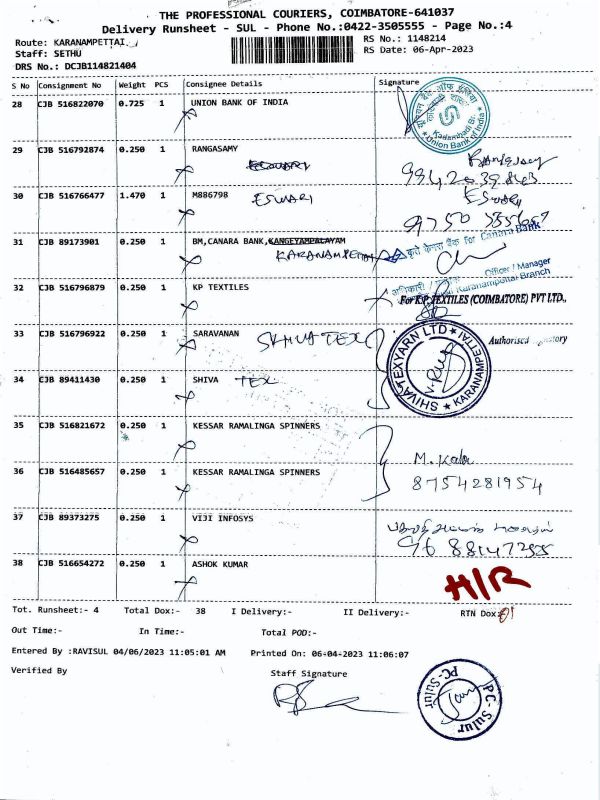 THE PROFESSIONAL COURIERS, COIMBATORE-641037
Delivery Runsheet - SUL - Phone No.:0422-3505555 - Page No.:4
Route: KARANAMPETTAI
Staff: SETHU
DRS No.: DCJB114821404
RS No.: 1148214
RS Date: 06-Apr-2023
S No Consignment No Weight PCS Consignee Details Signature
28 CJB 516822070 0.725 1 UNION BANK OF INDIA
Union Bank of India
29 CJB 516792874 0.250 1 RANGASAMY Rangasamy
30 CJB 516766477 1.470 1 M886798 ESWARI Eswari
9750
31 CJB 89173901 0.250 1 BM,CANARA BANK,KANGEYAMPALAYAM
KARANAMPETTAI
कृते केनरा बैंक For Canara Bank
Officer / Manager
Karanampettai Branch
32 CJB 516796879 0.250 1 KP TEXTILES
For K.P. TEXTILES (COIMBATORE) PVT LTD.,
Authorised Signatory
33 CJB 516796922 0.250 1 SARAVANAN SHIVA TEX
34 CJB 89411430 0.250 1 SHIVA TEX
SHIVA TEXYARN LTD ★ KARANAMPETTAI ★
35 CJB 516821672 0.250 1 KESSAR RAMALINGA SPINNERS
36 CJB 516485657 0.250 1 KESSAR RAMALINGA SPINNERS
M. Kala
8754281954
37 CJB 89373275 0.250 1 VIJI INFOSYS
38 CJB 516654272 0.250 1 ASHOK KUMAR H/R
Tot. Runsheet:- 4 Total Dox:- 38 I Delivery:- II Delivery:- RTN Dox:
Out Time:- In Time:- Total POD:-
Entered By :RAVISUL 04/06/2023 11:05:01 AM Printed On: 06-04-2023 11:06:07
Verified By Staff Signature
PC-Sulur PC-Sulur